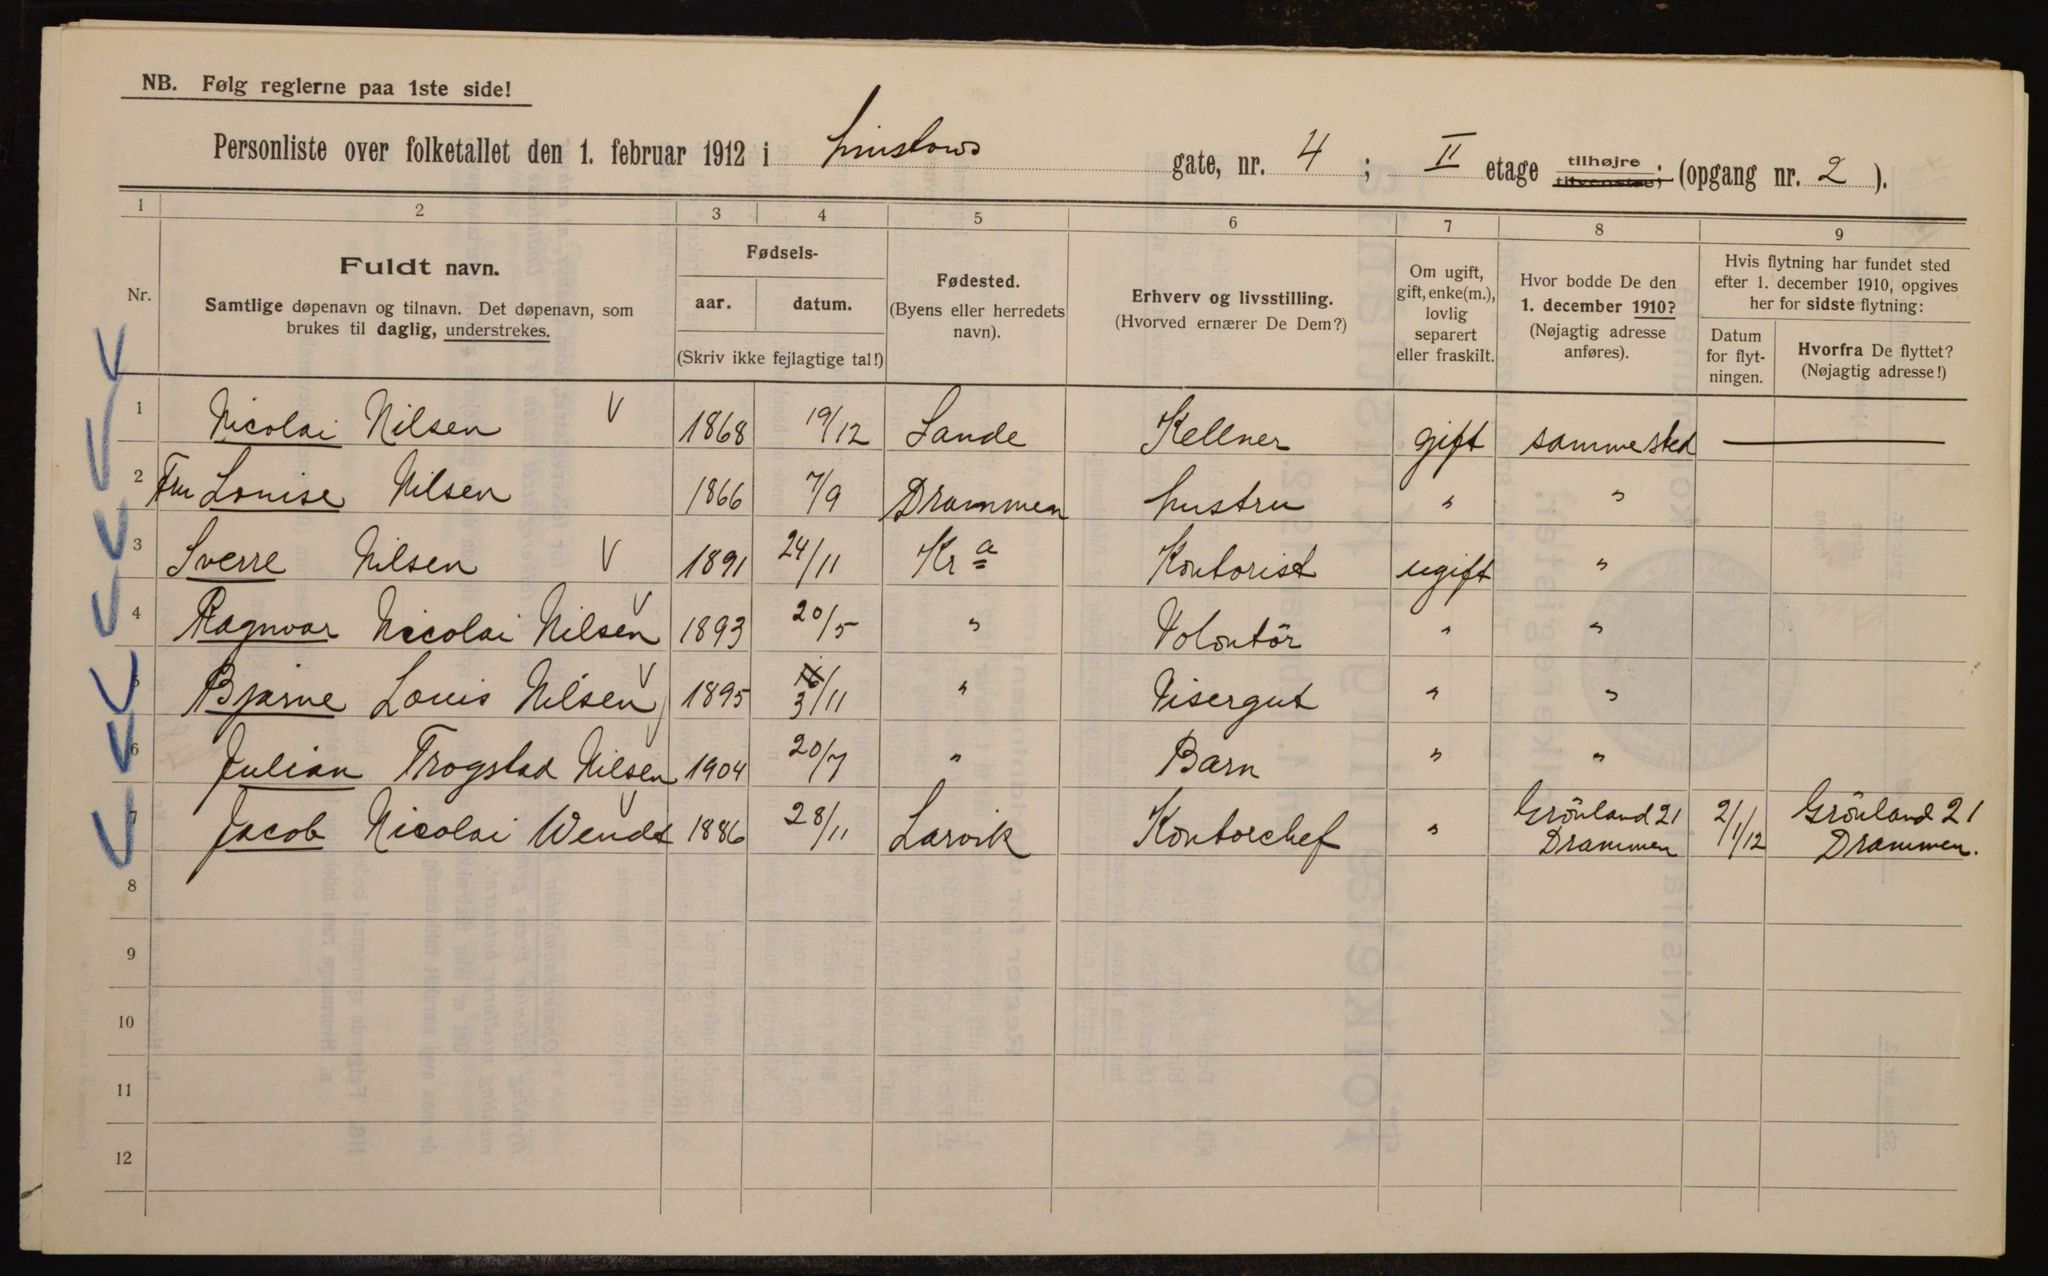 NB. Følg reglerne paa 1ste side!
Personliste over folketallet den 1. februar 1912 i Linstows gate, nr. 4 ; II etage tilhøjre tilvenstre; (opgang nr. 2 ).
1 2 3 4 5 6 7 8 9
Nr.
Fuldt navn.
Samtlige døpenavn og tilnavn. Det døpenavn, som
brukes til daglig, understrekes.
Fødsels-
aar. datum.
(Skriv ikke fejlagtige tal!)
Fødested.
(Byens eller herredets
navn).
Erhverv og livsstilling.
(Hvorved ernærer De Dem?)
Om ugift,
gift, enke(m.),
lovlig
separert
eller fraskilt.
Hvor bodde De den
1. december 1910?
(Nøjagtig adresse
anføres).
Hvis flytning har fundet sted
efter 1. december 1910, opgives
her for sidste flytning:
Datum
for flyt-
ningen.
Hvorfra De flyttet?
(Nøjagtig adresse!)
1 Nicolai Nilsen 1868 19/12 Sande Kellner gift sammested
2 Fru Louise Nilsen 1866 7/9 Drammen hustru " "
3 Sverre Nilsen 1891 24/11 Kra Kontorist ugift "
4 Ragnvar Nicolai Nilsen 1893 20/5 " Volontör " "
5 Bjarne Louis Nilsen 1895 3/11 " Visergut " "
6 Julian Trogstad Nilsen 1904 20/7 " Barn " "
7 Jacob Nicolai Wendt 1886 28/11 Larvik Kontorchef " Grönland 21 Drammen 2/1/12 Grönland 21 Drammen.
8
9
10
11
12